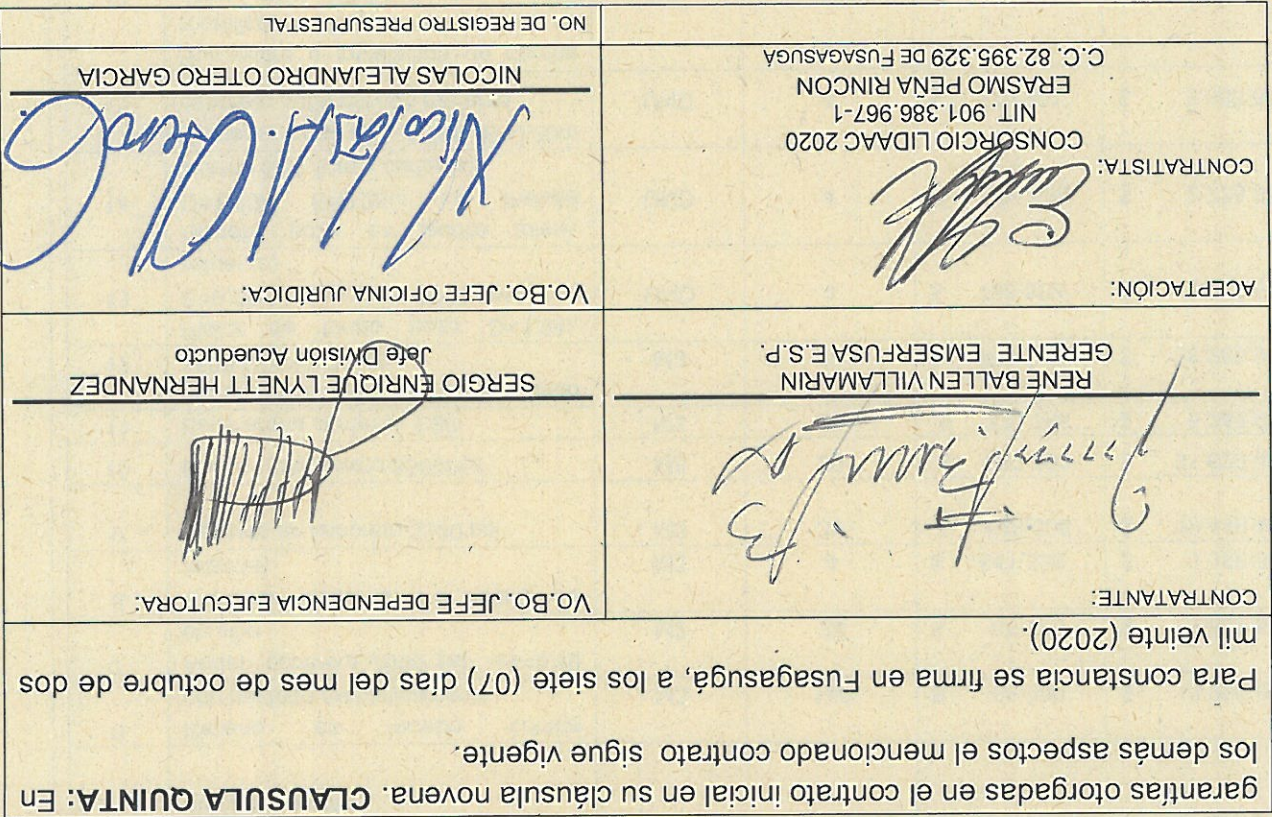 garantías otorgadas en el contrato inicial en su cláusula novena. CLAUSULA QUINTA: En
los demás aspectos el mencionado contrato sigue vigente.
Para constancia se firma en Fusagasugá, a los siete (07) días del mes de octubre de dos
mil veinte (2020).
CONTRATANTE:
RENÉ BALLEN VILLAMARIN
GERENTE EMSERFUSA E.S.P.
Vo.Bo. JEFE DEPENDENCIA EJECUTORA:
SERGIO ENRIQUE LYNETT HERNANDEZ
Jefe División Acueducto
ACEPTACIÓN:
CONTRATISTA:
CONSORCIO LIDAAC 2020
NIT. 901.386.967-1
ERASMO PEÑA RINCON
C.C. 82.395.329 DE FUSAGASUGÁ
Vo.Bo. JEFE OFICINA JURÍDICA:
Nicolás A. Otero G
NICOLAS ALEJANDRO OTERO GARCIA
NO. DE REGISTRO PRESUPUESTAL